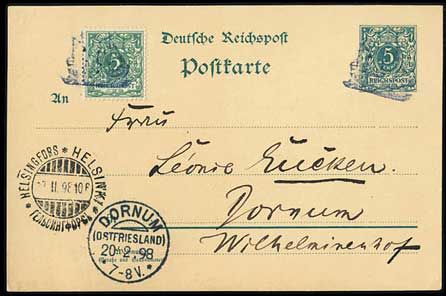 Deutsche Reichspost
Postkarte
5
REICHSPOST
5
An
Frau
Léonie Eucken.
Dornum
Wilhelminenhof
HELSINGFORS * HELSINKI
II. 98 10
ГЕЛЬСИНГФОРСЪ
DORNUM
(OSTFRIESLAND)
20 2. 98
7-8V. *